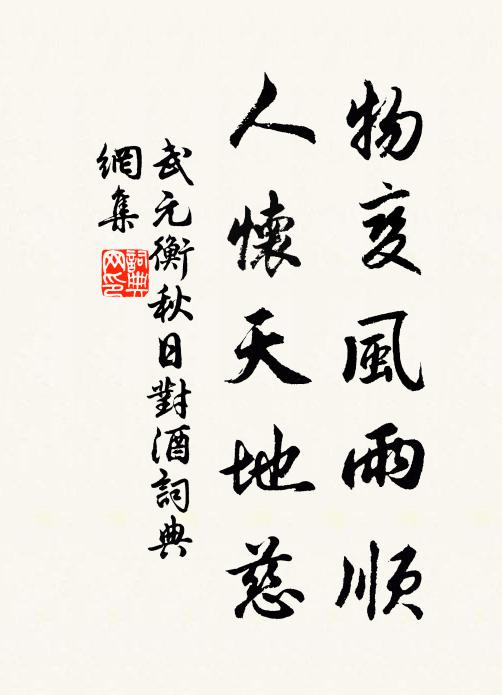 物变風雨順
人懷天地慈
武元衡秋日對酒詞典
網集
詞典
网印